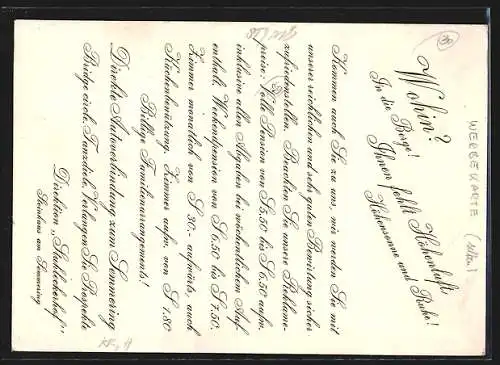 Wohin?
In die Berge!
Ihnen fehlt Höhenluft
Höhensonne und Ruhe!
Kommen auch Sie zu uns, wir werden Sie mit
unserer reichlichen und sehr guten Bewirtung sicher
zufriedenstellen. Beachten Sie unsere Reklame-
preise: Voll Pension von S 5.50 bis S 6.50 aufw.
inklusive allen Abgaben bei wöchentlichen Auf-
enthalt. Wochenpension von S 6.50 bis S 7.50.
Zimmer monatlich von S 30.- aufwärts, auch
Küchenbenützung. Zimmer aufw. von S 1.80
Billige Familienarrangements!
Direkte Autoverbindung zum Semmering
Bridge circh. Tanzdiele. Verlangen Sie Prospekte
Direktion „Stuhleckerhof"
Steinhaus am Semmering
WERBEKARTE